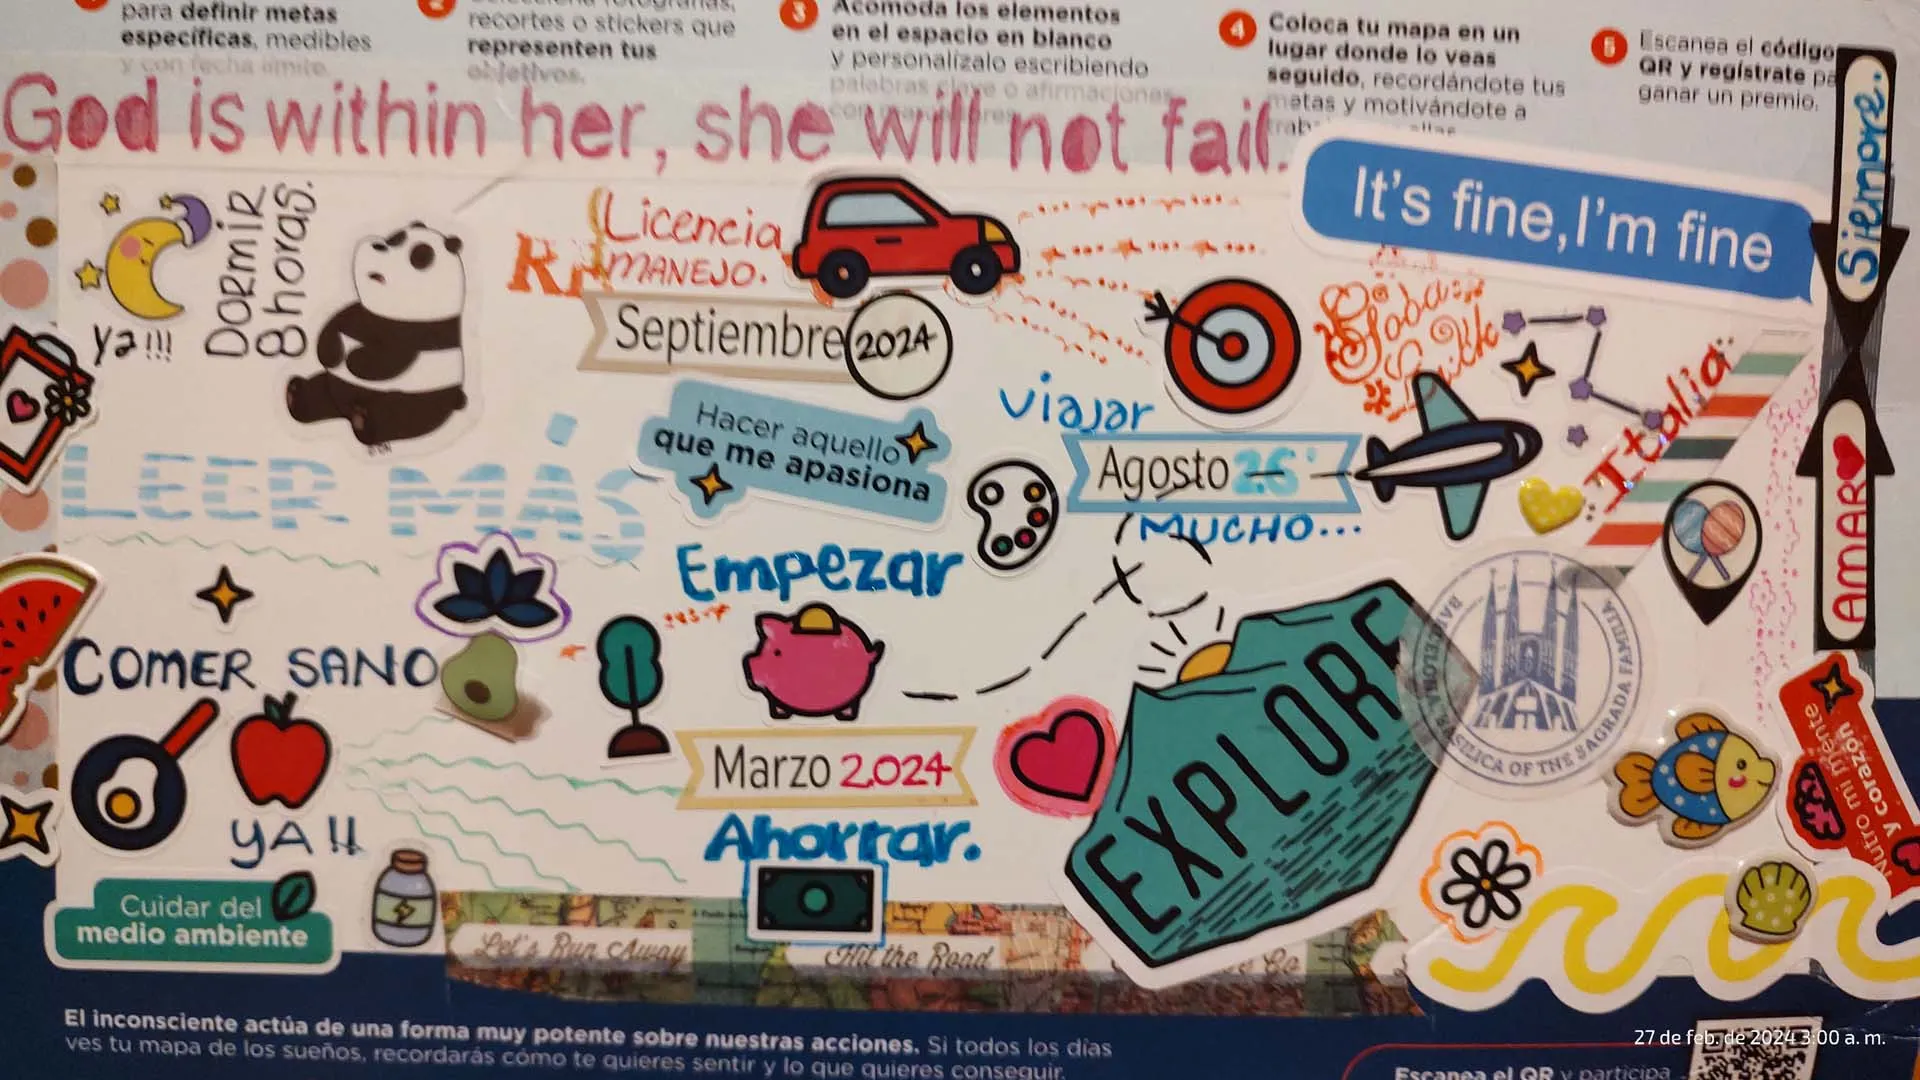 para definir metas
específicas, medibles
y con fecha límite.
2
recortes o stickers que
representen tus
objetivos.
3 Acomoda los elementos
en el espacio en blanco
y personalízalo escribiendo
palabras clave o afirmaciones
4 Coloca tu mapa en un
lugar donde lo veas
seguido, recordándote tus
metas y motivándote a
5 Escanea el código
QR y regístrate pa
ganar un premio.
God is within her, she will not fail.
It's fine, I'm fine
Siempre.
AMAR
DORMIR
8 horas.
ya!!!
Licencia
MANEJO.
Septiembre 2024
Hacer aquello
que me apasiona
Viajar
Agosto
MUCHO...
Italia
LEER MÁS
Empezar
COMER SANO
YA!!
Marzo 2024
Ahorrar.
EXPLORE
BARCELONA, BASILICA OF THE SAGRADA FAMILIA
Nutro mi mente
y corazón
Cuidar del
medio ambiente
Let's Run Away
Hit the Road
Go
El inconsciente actúa de una forma muy potente sobre nuestras acciones. Si todos los días
ves tu mapa de los sueños, recordarás cómo te quieres sentir y lo que quieres conseguir.
Escanea el QR y participa
27 de feb. de 2024 3:00 a. m.